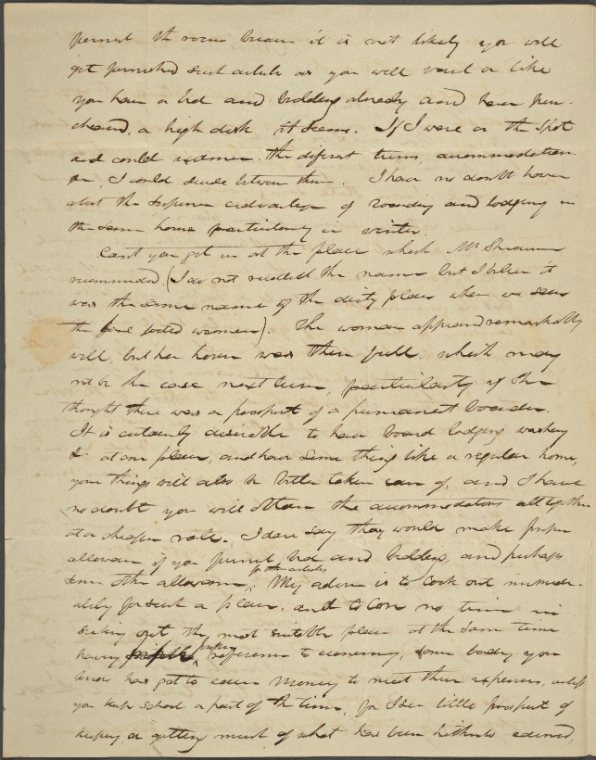 furnish the room because it is not likely you will
get furnished such article as you will want or like
you have a bed and bedding already and have pur-
chased, a high desk it seems. If I were on the spot
and could the different terms, accommodation
&c, I could decide between them. I have no doubt however
about the superior advantage of boarding and lodging in
the same house particularly in winter.
Cant you get in at the place which Mr
recommended, (I do not recollect the name but I believe it
was the same name of the dirty place where we saw
the footed women). The woman appeared remarkably
well, but her house was then full, which may
not be the case next time, particularly if she
thought there was a prospect of a permanent boarder.
It is certainly desirable to have board lodging washing
& at one place, and have some thing like a regular home,
your things will also be better taken care of, and I have
no doubt you will obtain the accommodations all together
at a cheaper rate. I dare say they would make proper
allowance if you furnish bed and bedding, and perhaps
some other allowance, for other articles My advice is to look out immedi-
ately for such a place, and to lose no time in
seeking out the most suitable place at the same time
having proper reference to economy, some body you
know has got to earn money to meet these expenses, unless
you keep school a part of the time, for I see little prospect of
keeping or getting much of what has been hitherto earned,